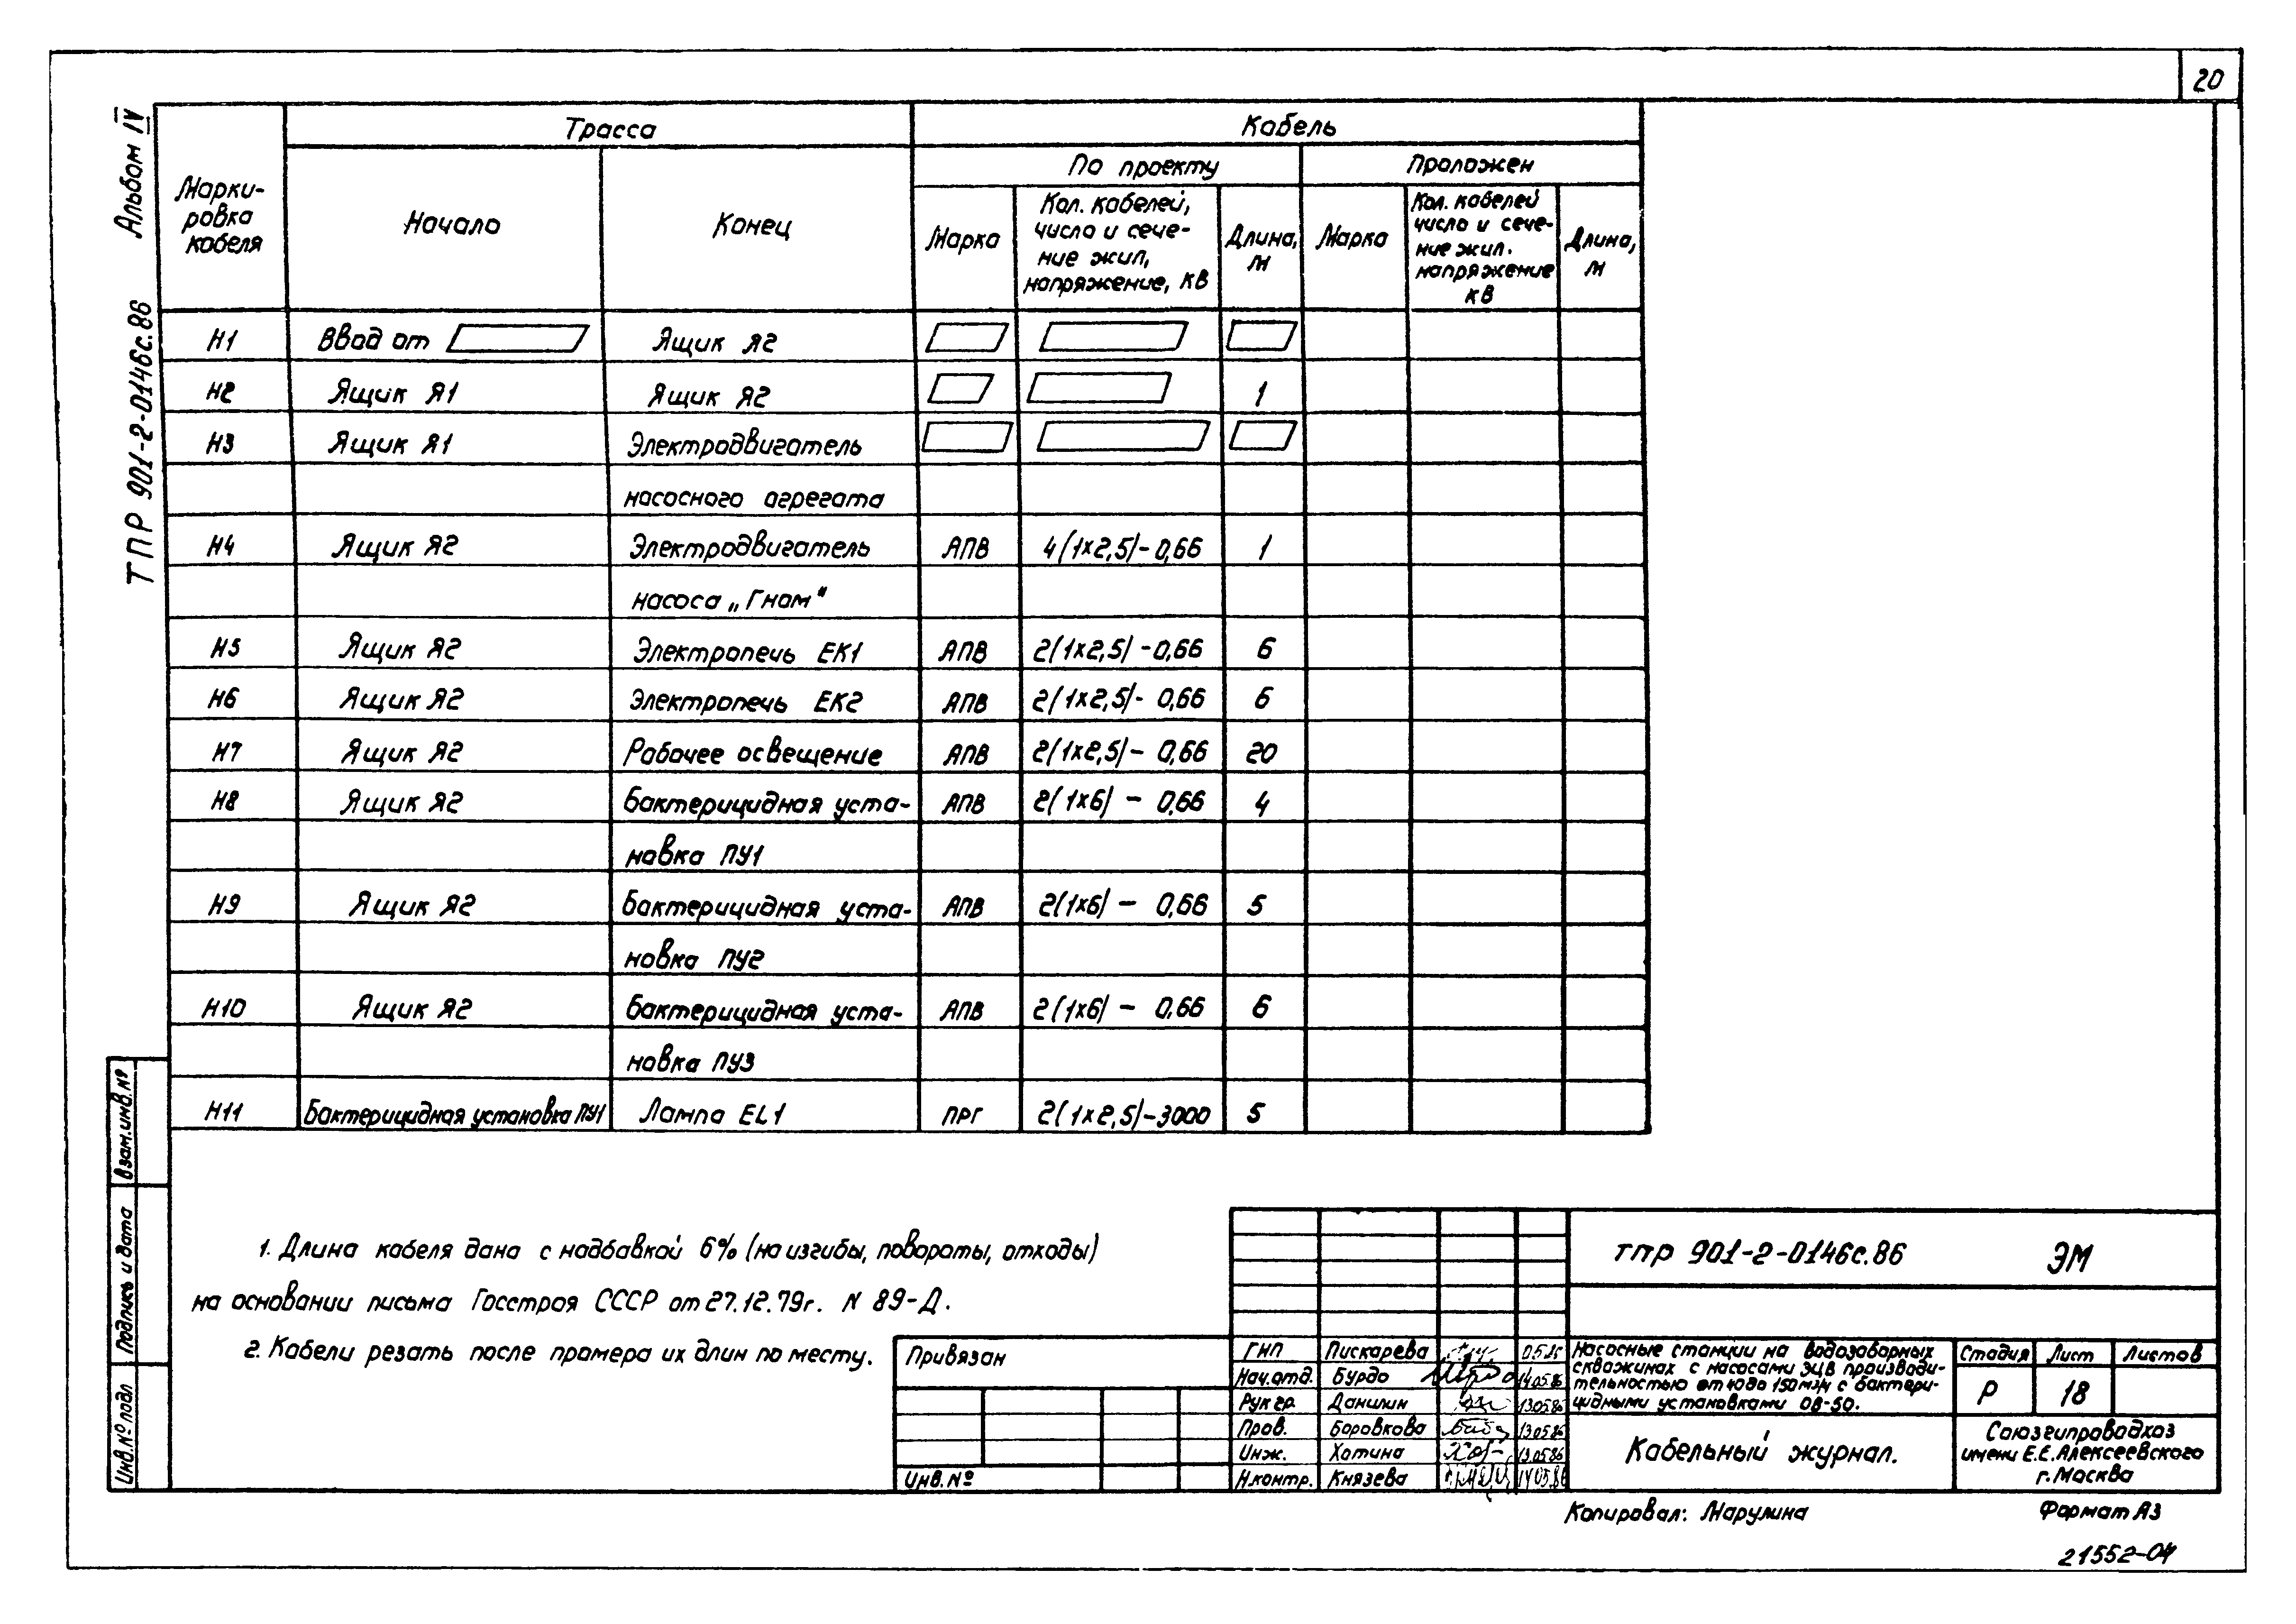 20
Альбом IV
ТПР 901-2-0146с.86
Марки-
ровка
кабеля
Трасса
Кабель
Начало
Конец
По проекту
Проложен
Марка
Кол. кабелей,
число и сече-
ние жил,
напряжение, кВ
Длина,
м
Марка
Кол. кабелей
число и сече-
ние жил.
напряжение
кВ
Длина,
м
Н1 Ввод от Ящик Я2
Н2 Ящик Я1 Ящик Я2 1
Н3 Ящик Я1 Электродвигатель
насосного агрегата
Н4 Ящик Я2 Электродвигатель АПВ 4(1х2,5)-0,66 1
насоса „Гном"
Н5 Ящик Я2 Электропечь ЕК1 АПВ 2(1х2,5)-0,66 6
Н6 Ящик Я2 Электропечь ЕК2 АПВ 2(1х2,5)-0,66 6
Н7 Ящик Я2 Рабочее освещение АПВ 2(1х2,5)-0,66 20
Н8 Ящик Я2 Бактерицидная уста- АПВ 2(1х6) - 0,66 4
новка ПУ1
Н9 Ящик Я2 Бактерицидная уста- АПВ 2(1х6) - 0,66 5
новка ПУ2
Н10 Ящик Я2 Бактерицидная уста- АПВ 2(1х6) - 0,66 6
новка ПУ3
Н11 Бактерицидная установка ПУ1 Лампа EL1 ПРГ 2(1х2,5)-3000 5
1. Длина кабеля дана с надбавкой 6% (на изгибы, повороты, отходы)
на основании письма Госстроя СССР от 27.12.79г. N 89-Д.
2. Кабели резать после промера их длин по месту.
Взам.инв.№
Подпись и дата
Инв.№ подл
Привязан
Инв.№
ТПР 901-2-0146с.86 ЭМ
ГИП Пискарева
Нач.отд. Бурдо 14.05.86
Рук гр. Данилин 13.05.86
Пров. Боровкова 13.05.86
Инж. Хотина 13.05.86
Н.контр. Князева 14.05.86
Насосные станции на водозаборных
скважинах с насосами ЭЦВ производи-
тельностью от 40до 150м3/ч с бактери-
цидными установками ОВ-50.
Стадия Лист Листов
Р 18
Кабельный журнал.
Союзгипроводхоз
имени Е.Е.Алексеевского
г.Москва
Копировал: Марулина
Формат А3
21552-04